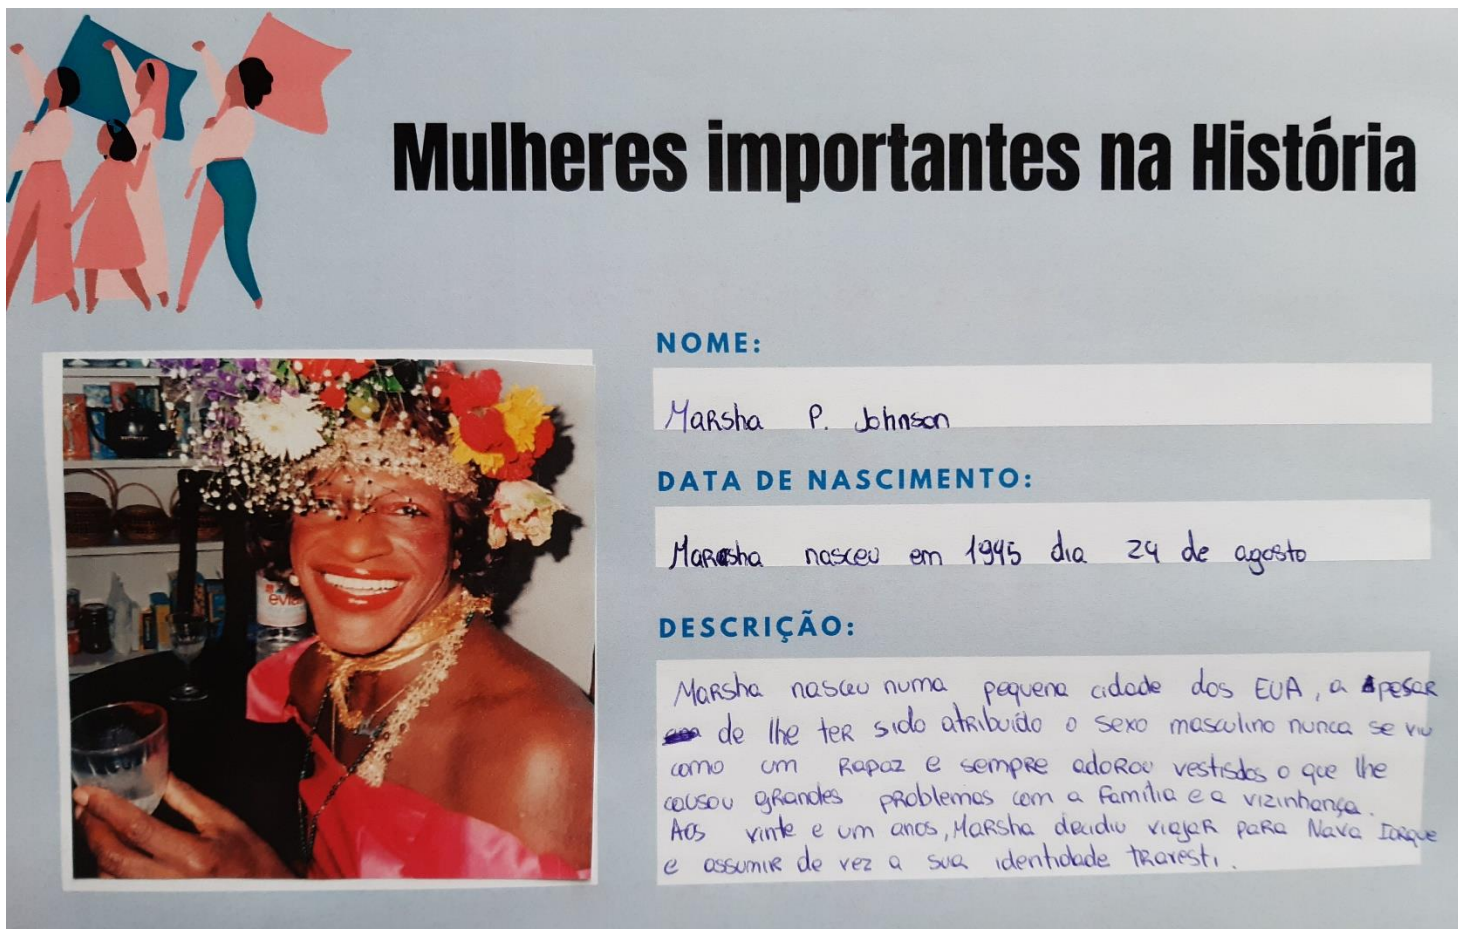 Mulheres importantes na História
NOME:
Marsha P. Johnson
DATA DE NASCIMENTO:
Marsha nasceu em 1945 dia 24 de agosto
DESCRIÇÃO:
Marsha nasceu numa pequena cidade dos EUA, a apesar
de lhe ter sido atribuído o sexo masculino nunca se viu
como um rapaz e sempre adorou vestisdos o que lhe
causou grandes problemas com a família e a vizinhança.
Aos vinte e um anos, Marsha decidiu viajar para Nova Iorque
e assumir de vez a sua identidade travesti.
evian